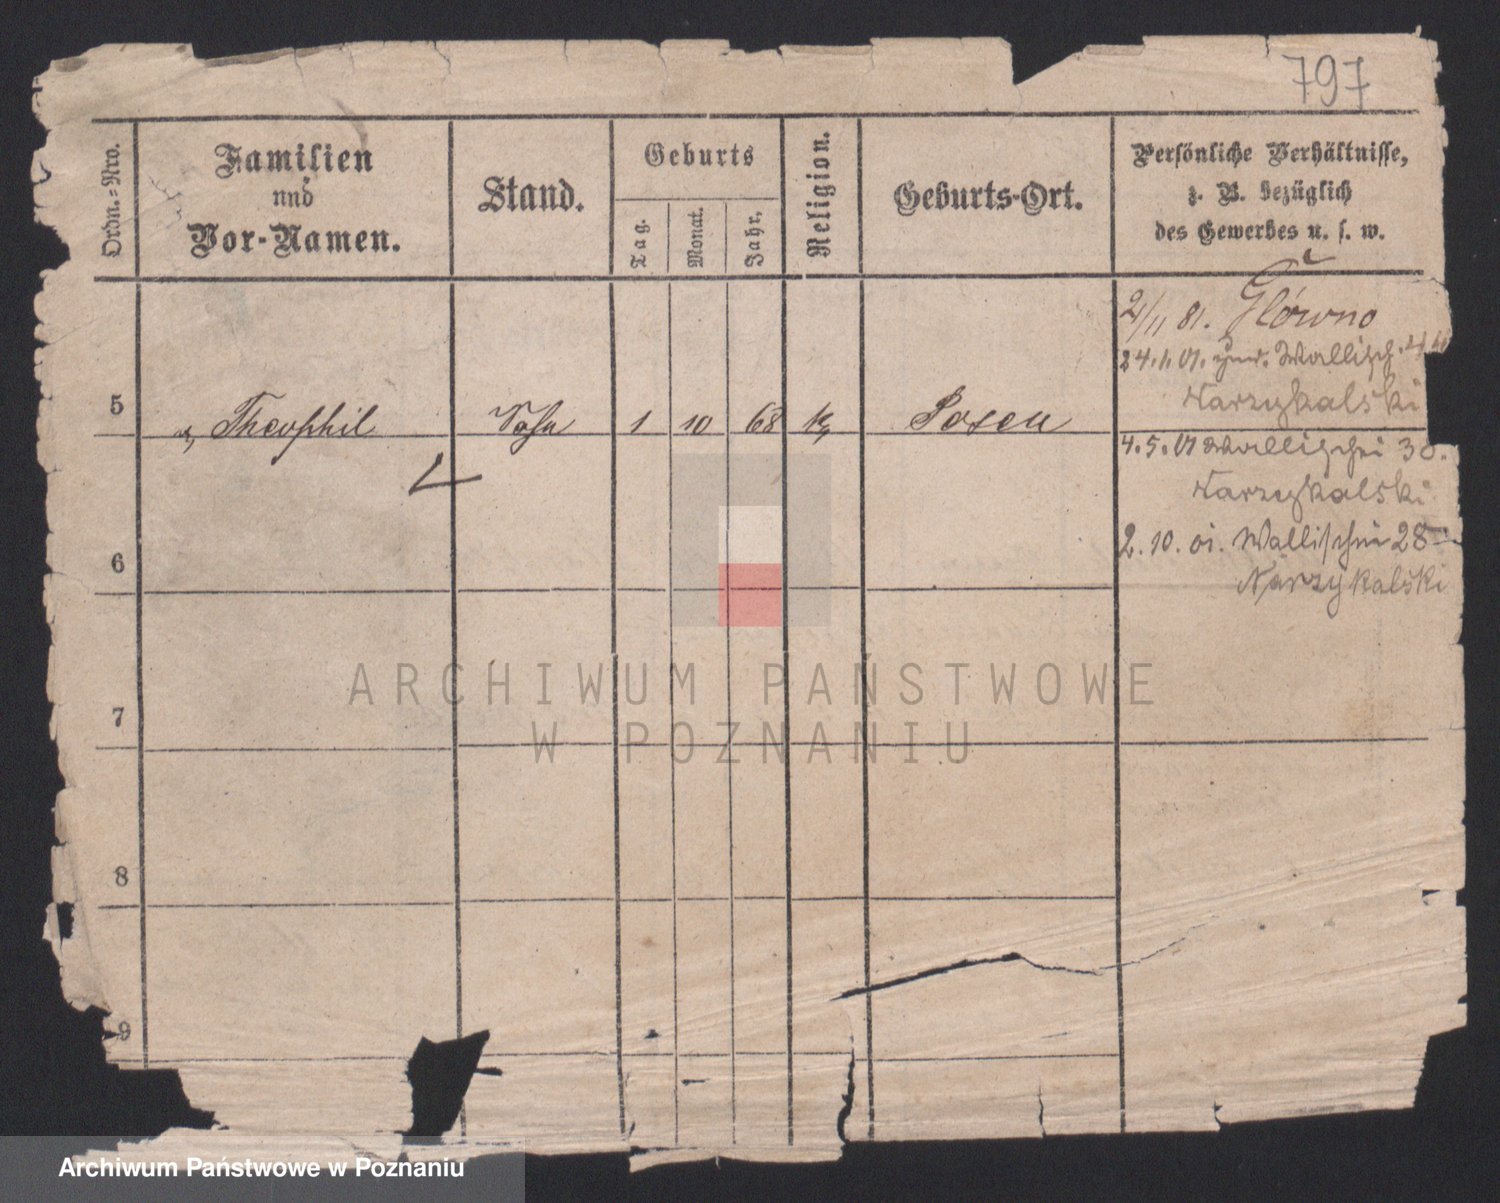 797
Ordn.-Nro.
Familien
und
Vor-Namen.
Stand.
Geburts
Tag.
Monat.
Jahr.
Religion.
Geburts-Ort.
Persönliche Verhältnisse,
z. B. bezüglich
des Gewerbes u. s. w.
2/11 81. Główno
24.1.01. Wallisch.
Narzykalski
5 Theophil Sohn 1 10 68 k Posen
4.5.01 Wallischei 30.
Narzykalski
2.10.01. Wallischei 28
Narzykalski
6
7
8
9
ARCHIWUM PAŃSTWOWE
W POZNANIU
Archiwum Państwowe w Poznaniu